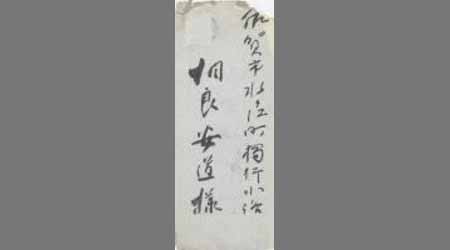 佐賀市水江町獨行小路
相良安道様